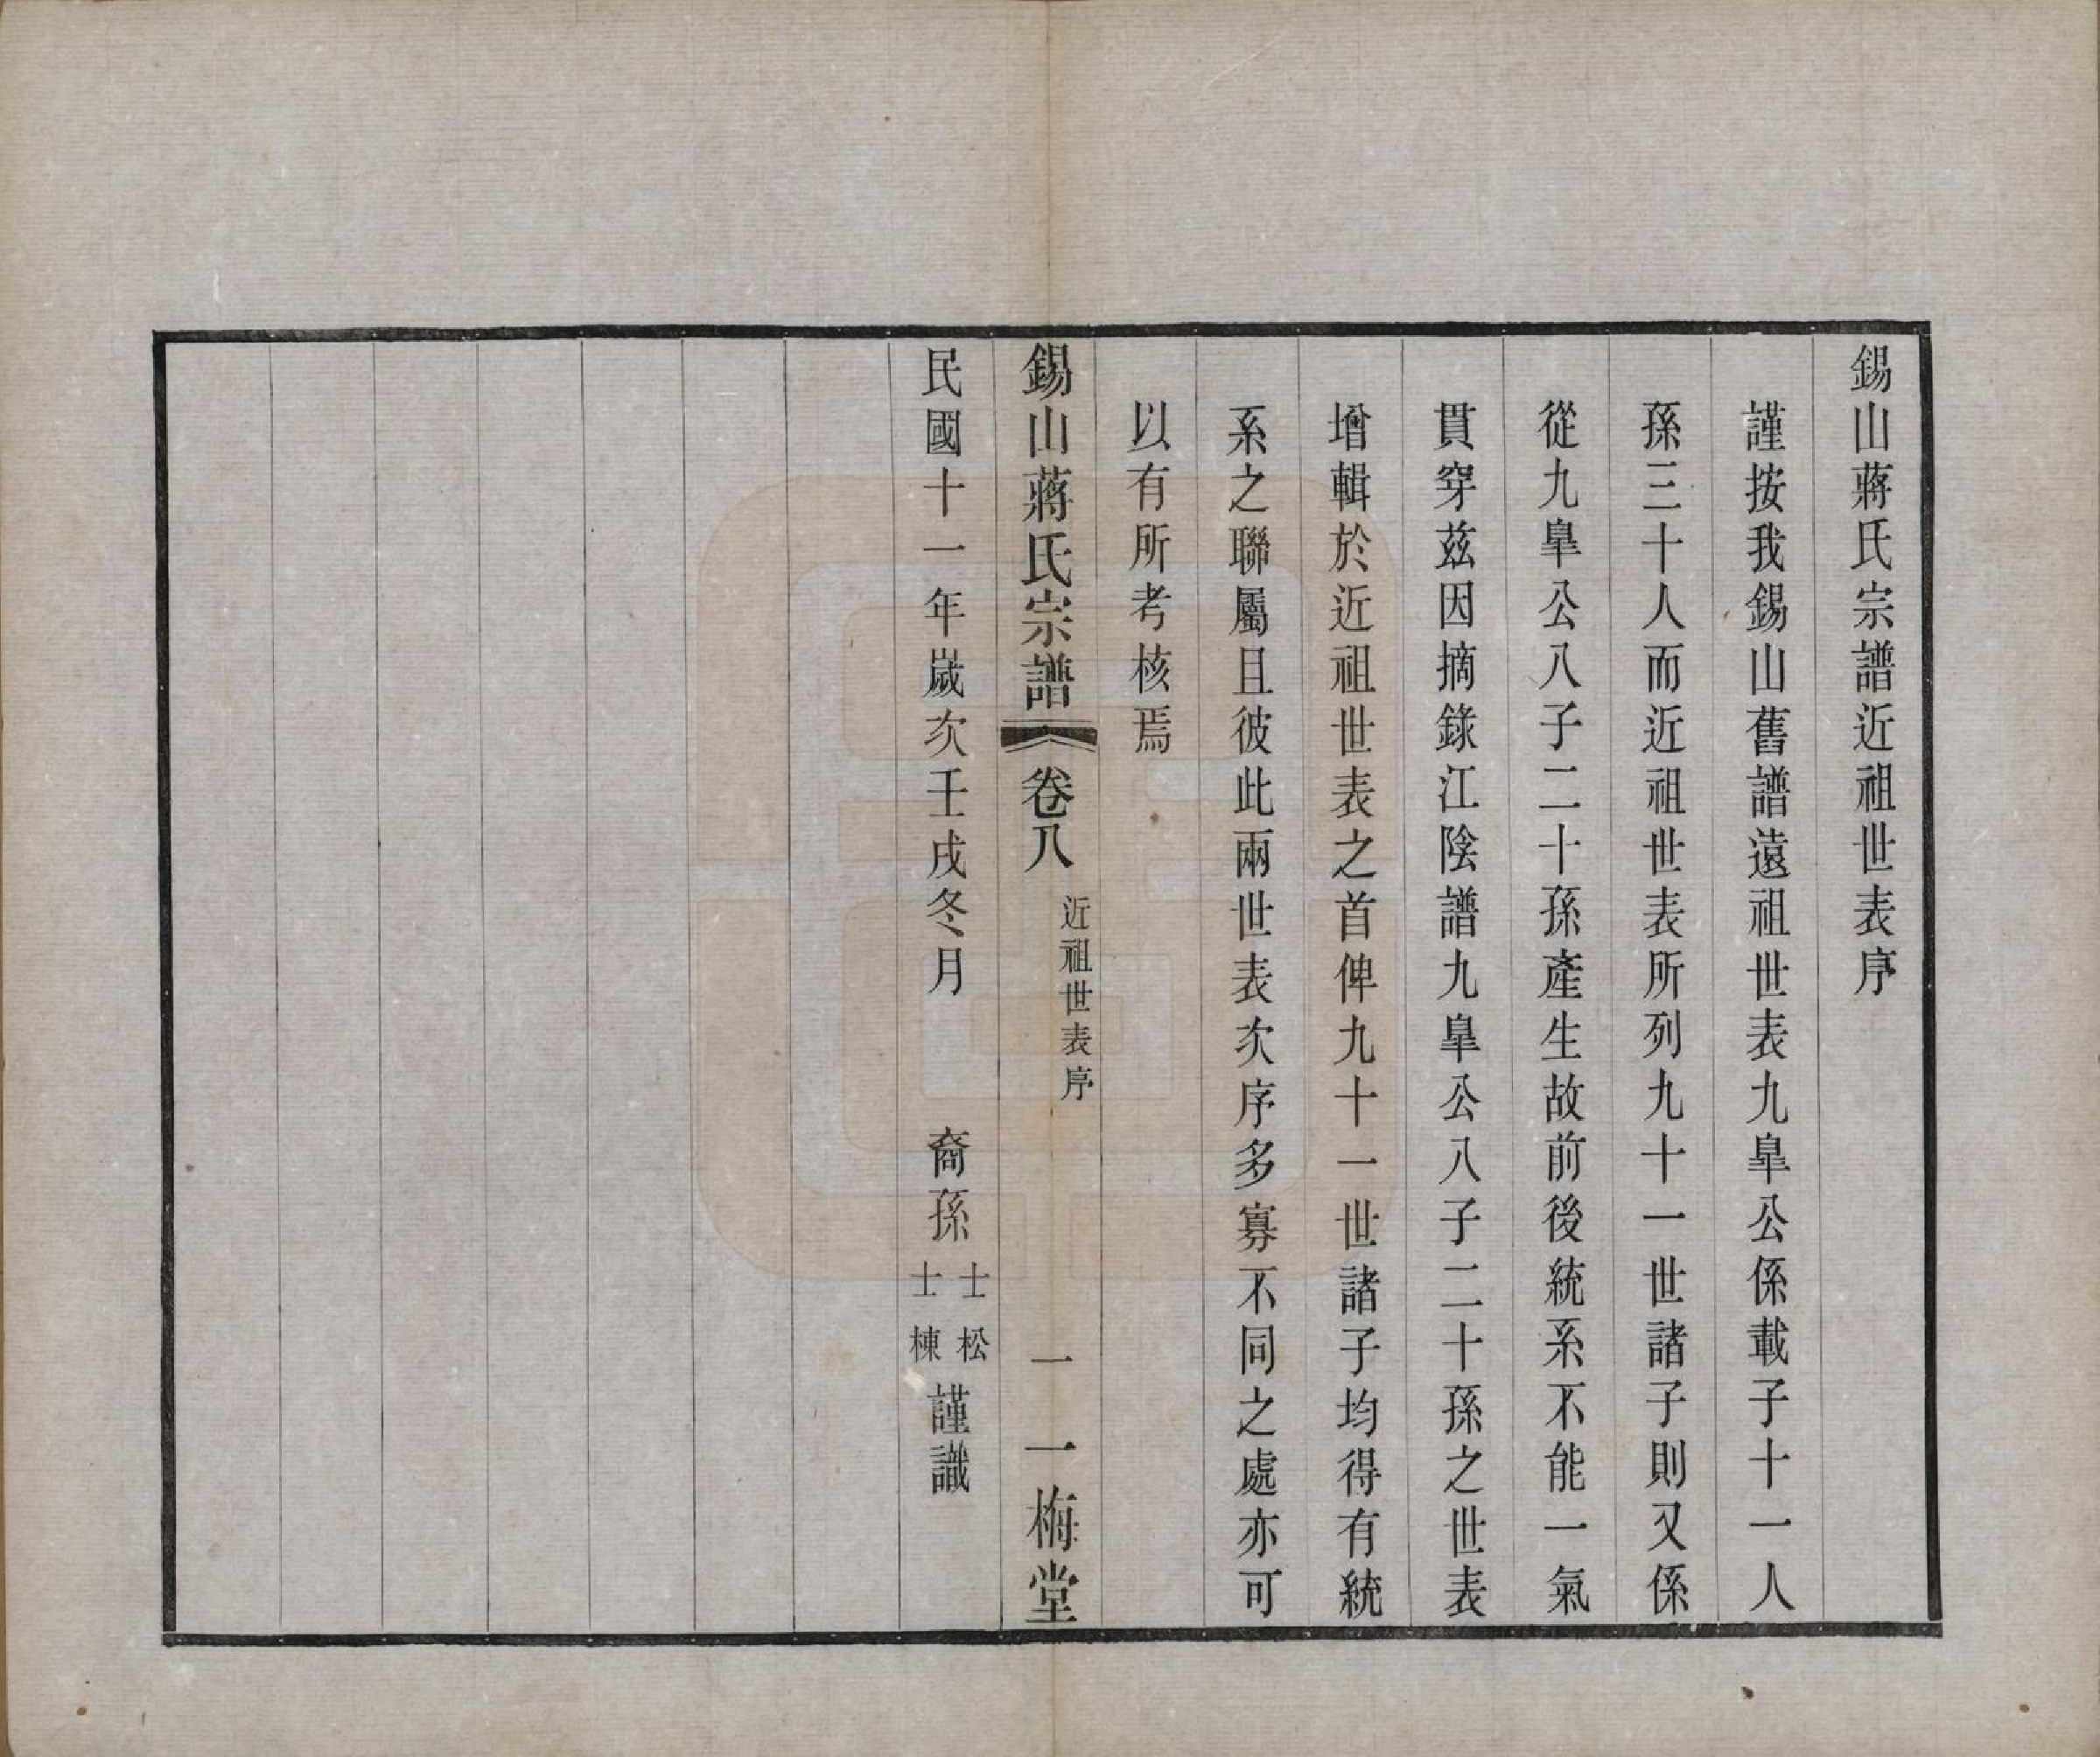 錫山蔣氏宗譜近祖世表序
謹按我錫山舊譜遠祖世表九皐公係載子十一人
孫三十人而近祖世表所列九十一世諸子則又係
從九皐公八子二十孫產生故前後統系不能一氣
貫穿茲因摘錄江陰譜九皐公八子二十孫之世表
增輯於近祖世表之首俾九十一世諸子均得有統
系之聯屬且彼此兩世表次序多寡不同之處亦可
以有所考核焉
錫山蔣氏宗譜 卷八 近祖世表序 一 一梅堂
民國十一年歲次壬戌冬月 裔孫 士松 士棟 謹識